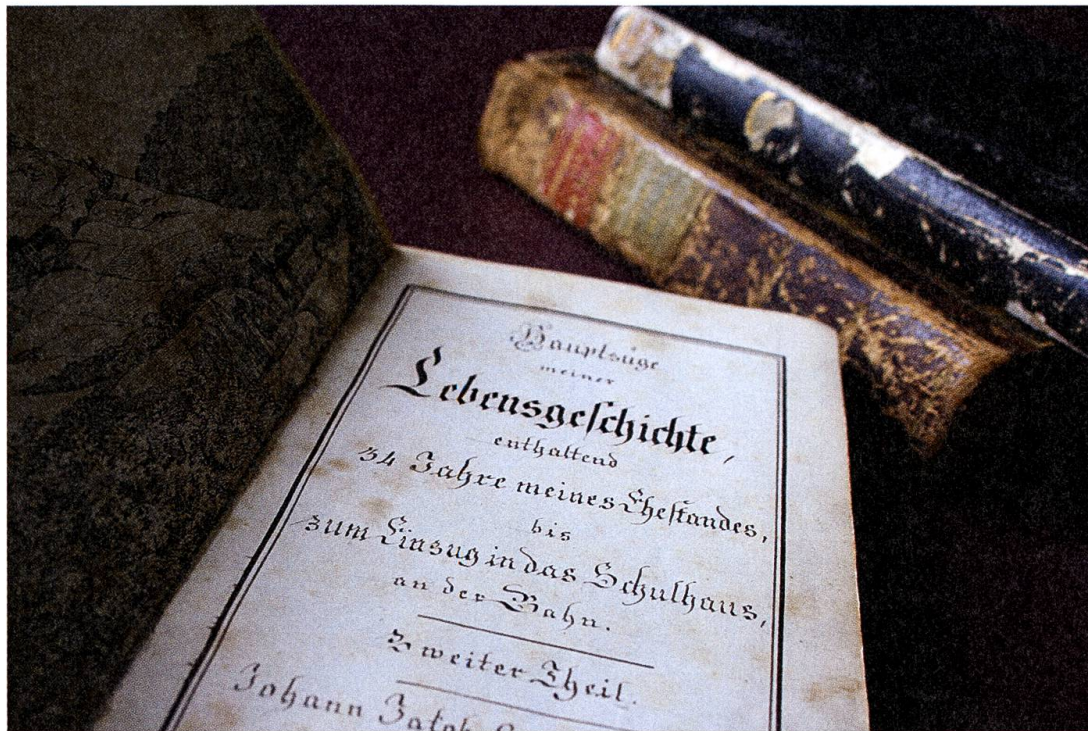 Hauptzüge
meiner
Lebensgeschichte,
enthaltend
34 Jahre meines Ehestandes,
bis
zum Einzug in das Schulhaus,
an der Bahn.
Zweiter Theil.
Johann Jakob